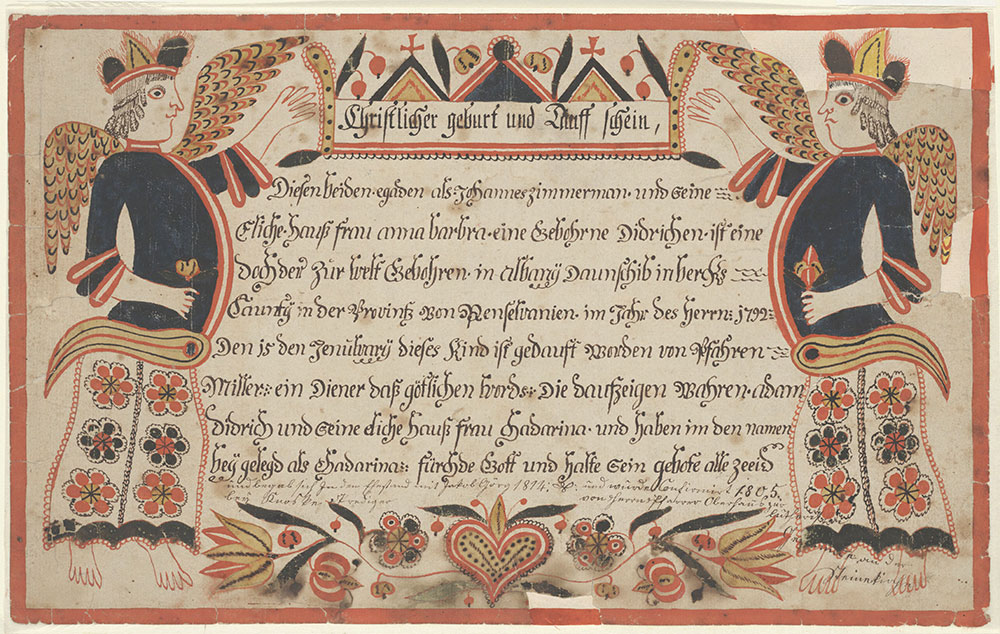 Christlicher geburt und Tauff schein,
Diesen beiden egaden als Johannes zimmerman und seine
Eliche Hauß frau anna barbra eine Gebohrne Didrichen ist eine
dochder zur welt Gebohren in albany Daunschib in bercks
Caunty in der Provintz von Penselvanien im Jahr des Herrn: 1792:
Den 15 den Jenuwary dieses Kind ist gedauft worden von Pfahren
Miller: ein Diener daß götlichen words: Die daufzeigen wahren adam
didrich und seine eliche Hauß frau Chadarina und haben im den namen
bey gelegd als Chadarina: fürchde Gott und halte sein gebote alle zeeid
und begab sich in den Ehestand mit Jakob Görg 1814. und wurde Confirmiert 1805.
von Herrn Pfarrer
an der